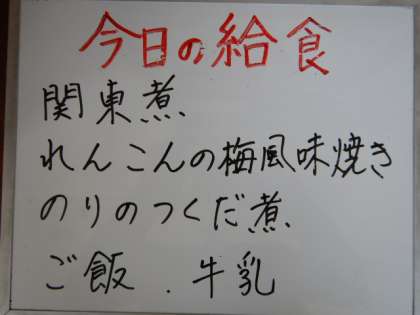 今日の給食
関東煮
れんこんの梅風味焼き
のりのつくだ煮
ご飯.牛乳